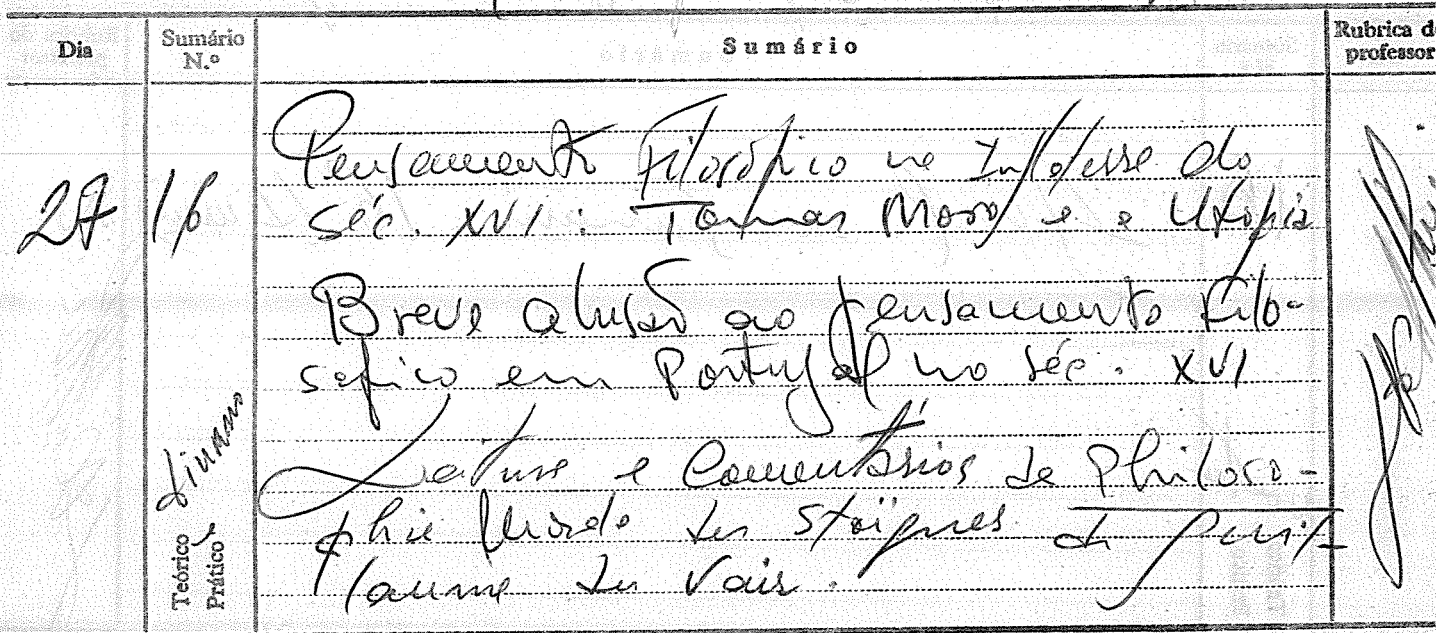 Dia Sumário N.º Sumário Rubrica do professor
Pensamento Filosófico na Inglaterra do
27 16 séc. XVI: Tomás Moro e a Utopia
Breve alusão ao pensamento filo-
sófico em Portugal no séc. XVI
Leitura e Comentários de Philoso-
phie Morale des Stoïques de Guil-
laume du Vair.
Teórico e Prático